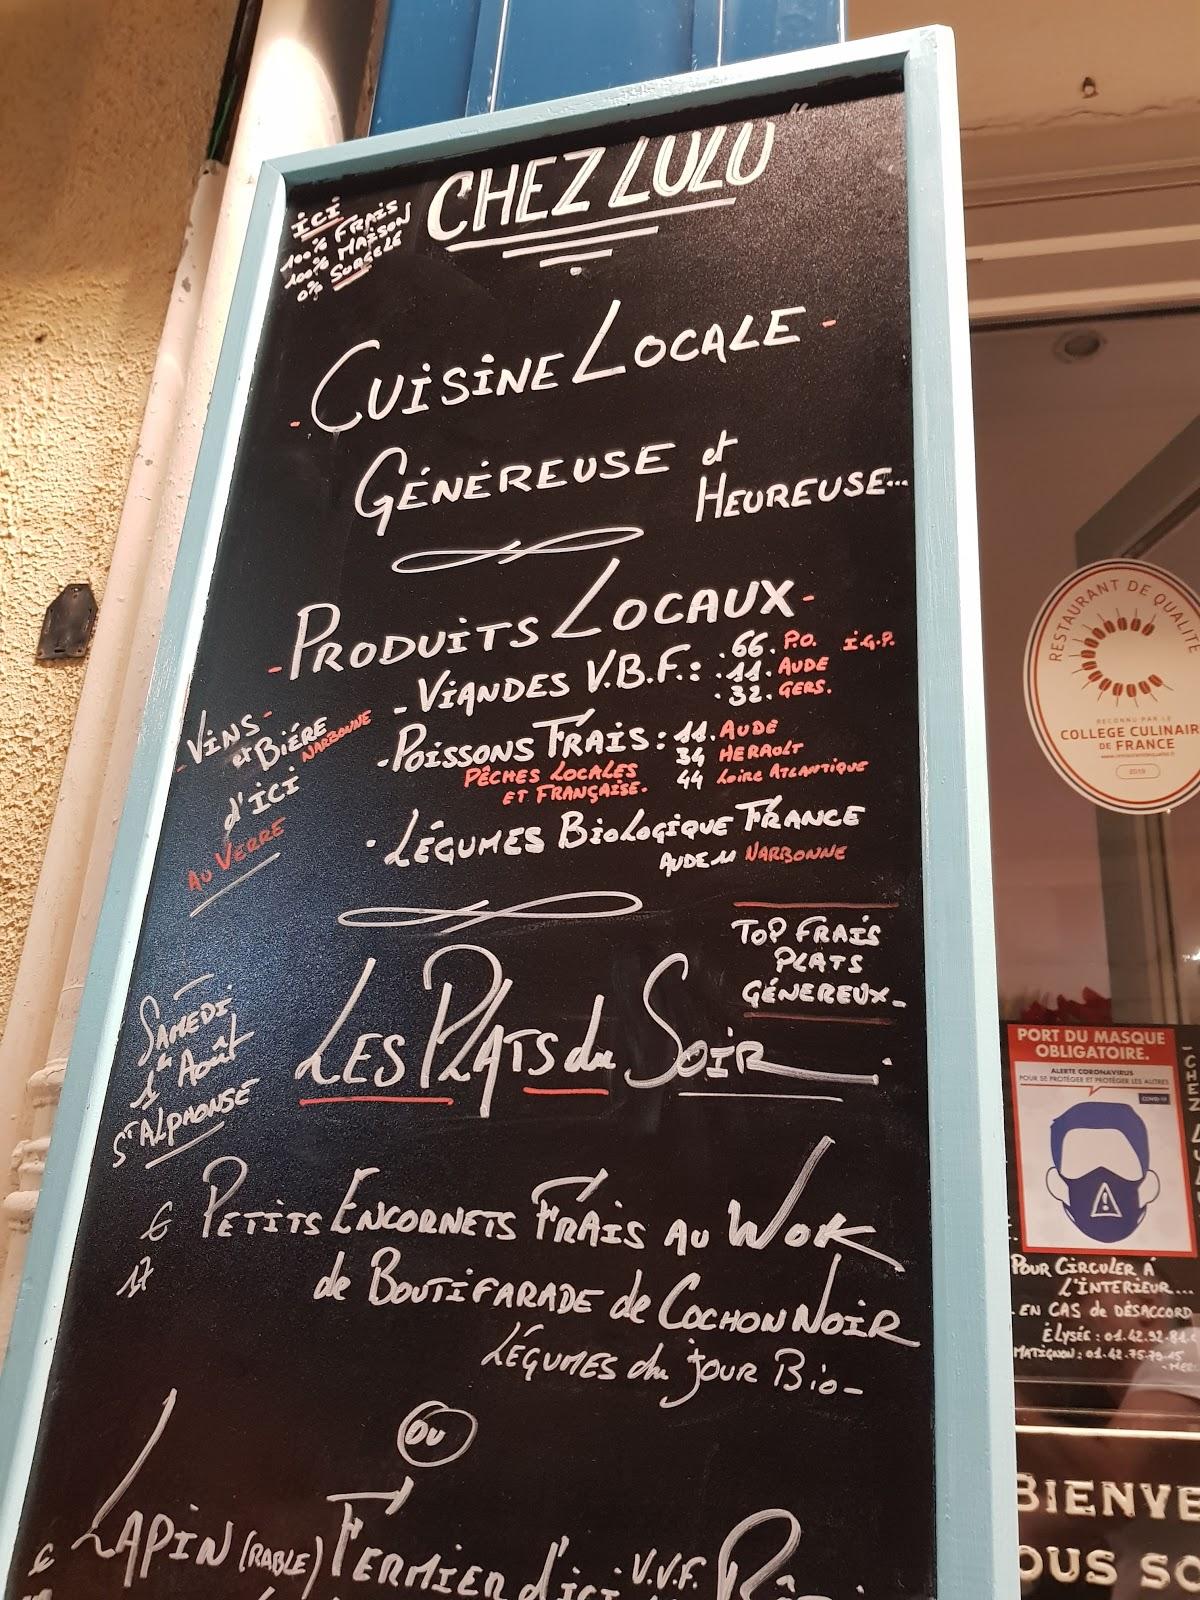 CHEZ LULU"
ICI
100% FRAIS
100% MAISON
0% SURGELÉ
- CUISINE LOCALE -
GÉNÉREUSE et
HEUREUSE...
- PRODUITS LOCAUX -
- VIANDES V.B.F.: .66. P.O. I.G.P.
.11. AUDE
.32. GERS.
- POISSONS FRAIS: 11. AUDE
34 HERAULT
44 LOIRE ATLANTIQUE
PÊCHES LOCALES
ET FRANÇAISE.
- LÉGUMES BIOLOGIQUE FRANCE
AUDE 11 NARBONNE
- VINS -
et BIÉRE
NARBONNE
d'ICI
AU VERRE
TOP FRAIS
PLATS
GÉNEREUX -
LES PLATS du SOIR
SAMEDI
1er Août
St ALPHONSE
€ PETITS ENCORNETS FRAIS AU WOK
17
de BOUTIFARADE de COCHON NOIR
LÉGUMES du jour Bio -
OU
€ LAPIN (RABLE) FERMIER d'ici V.V.F.
RESTAURANT DE QUALITÉ
RECONNU PAR LE
COLLEGE CULINAIR
DE FRANCE
2019
PORT DU MASQUE
OBLIGATOIRE.
ALERTE CORONAVIRUS
POUR SE PROTÉGER ET PROTÉGER LES AUTRES
COVID-19
POUR CIRCULER A
L'INTERIEUR...
EN CAS de DÉSACCORD
ÉLYSÉE: 01.42.92.81.
MATIGNON: 01.42.75.79.15
BIENVE
OUS SO